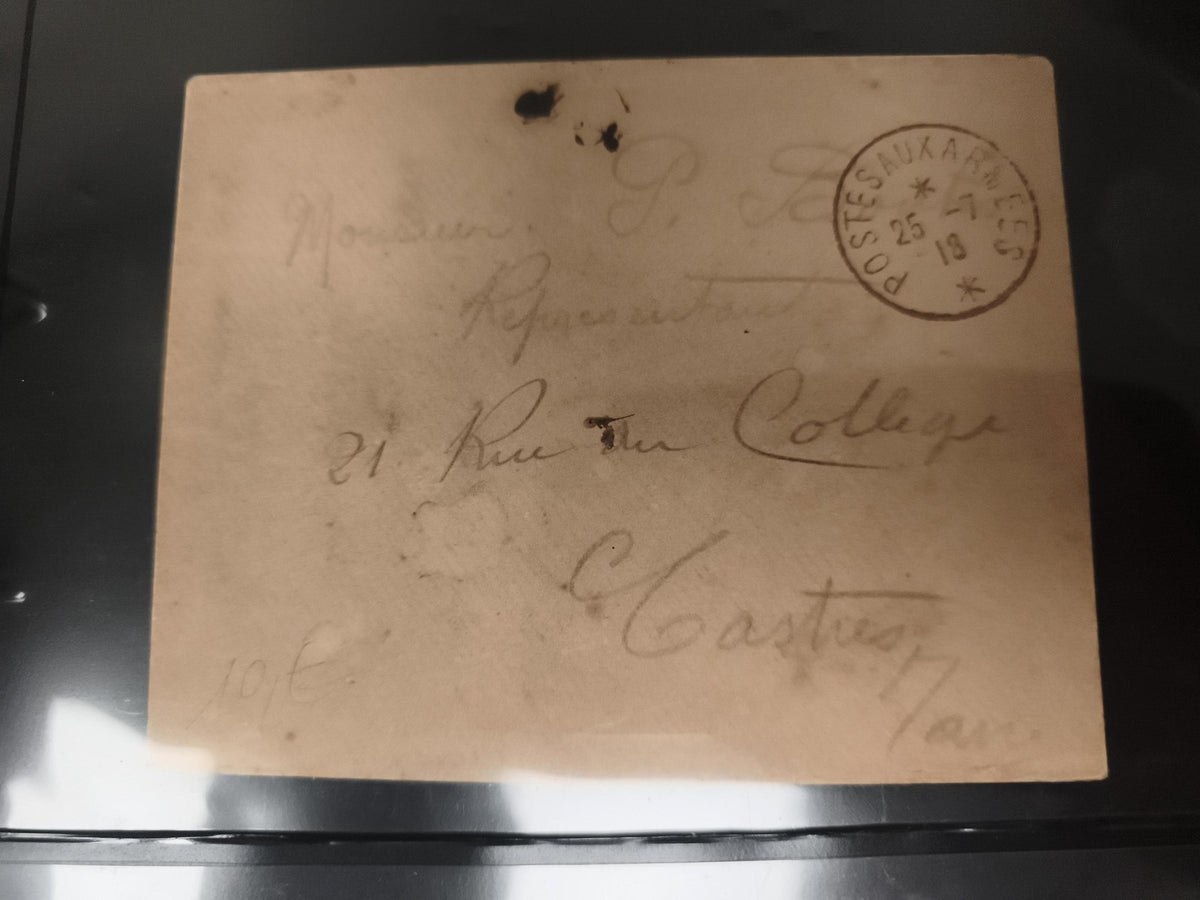 Monsieur P. B
POSTES AUX ARMEES
25 -7
18
Representant
21 Rue du College
Castres
Tarn
10,€